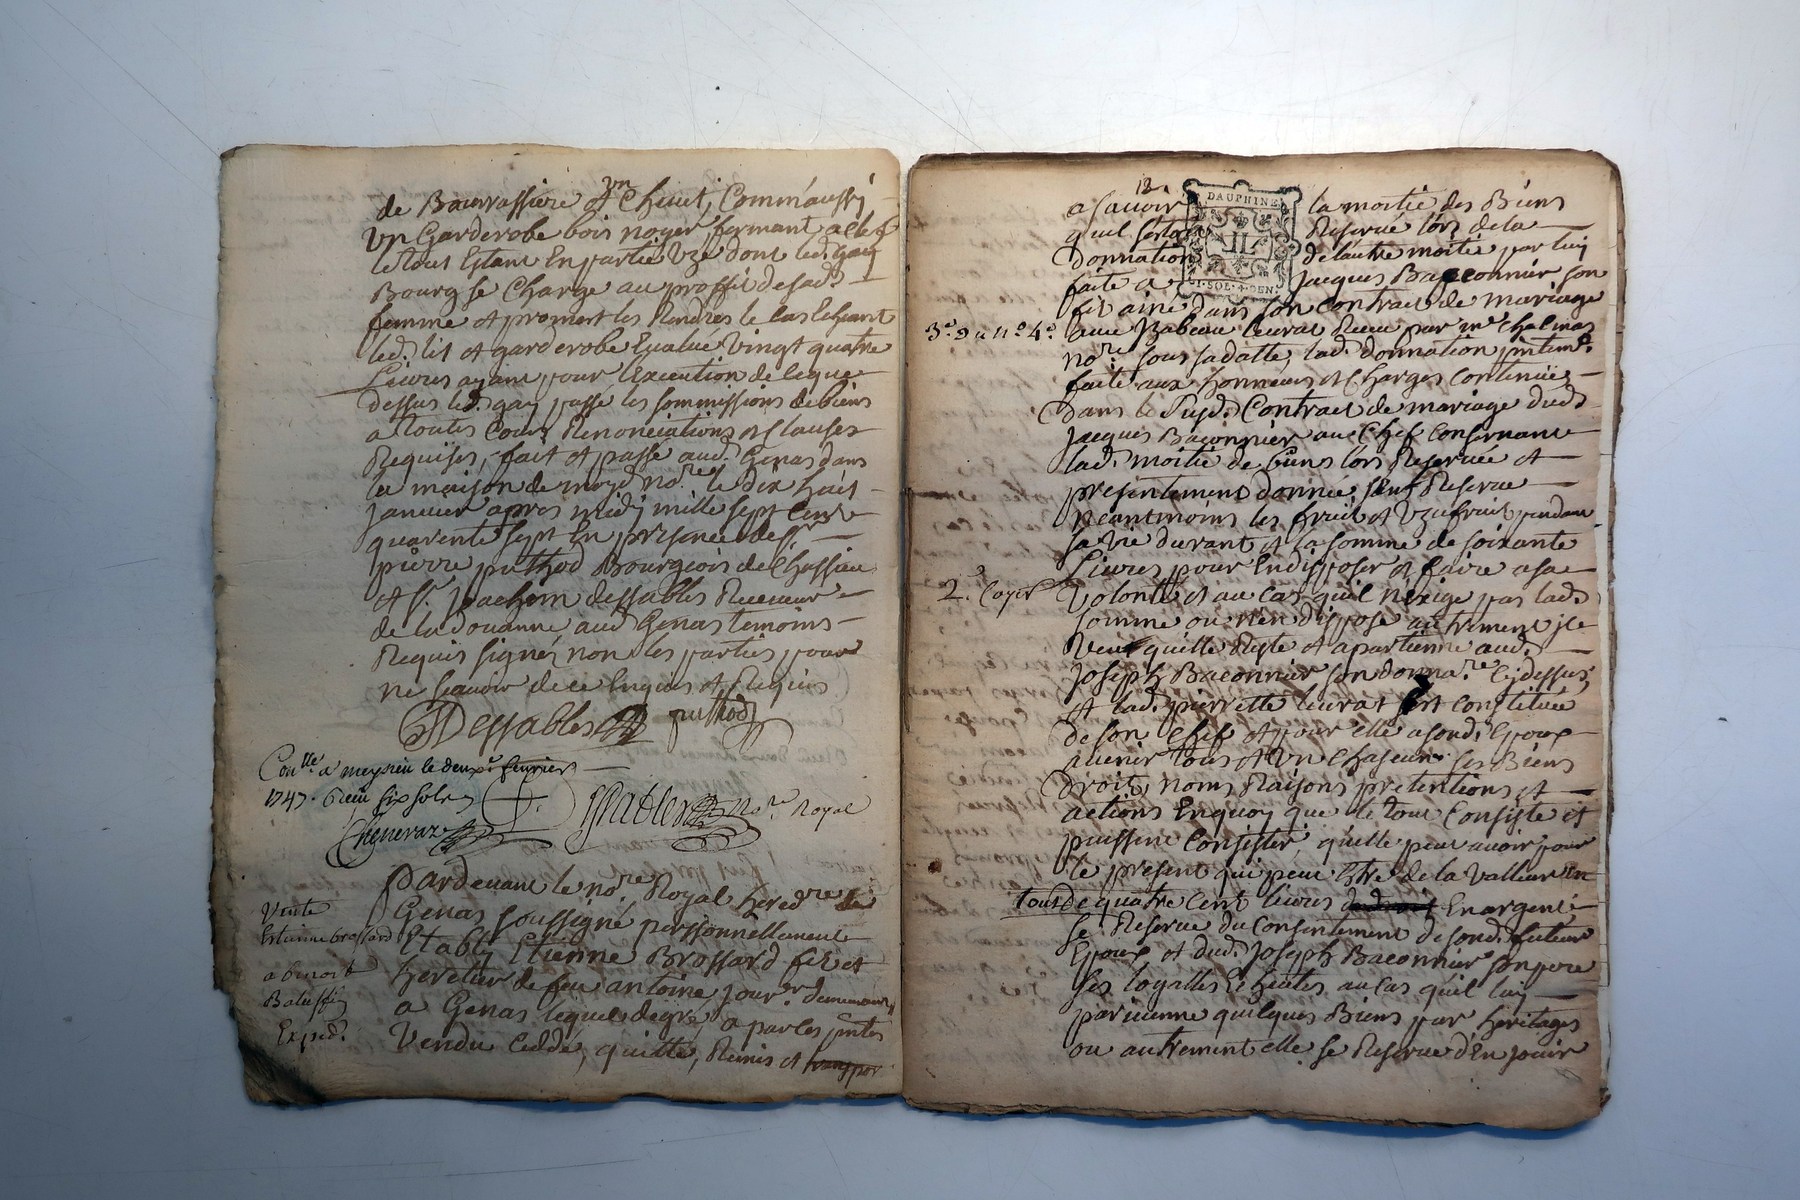 de Bourrassiere et un Chevet, Comm'aussy
un Garderobe bois noyer fermant a clef
le tout Estant En partie Uzé dont led. Gay
Bourg se Charge au proffit de sad.
femme et promet les Rendres le cas Echeant
led. lit et garderobe Evalue vingt quatre
Livres ayant pour l'Execution de le que
dessus led. gay passé les sommissions de biens
a toutes Cours Renonciations et Clauses
Requises, fait et passé aud. Genas dans
la maison de moyd. no.re le dix huit
janvier apres midy mille sept Cent
quarente sept En presence de Sr.
pierre puthod Bourgeois de Chassieu
et Sr. Joachim dessables Receveur
de la douanne aud. Genas temoins
Requis signés non les parties pour
ne scavoir de ce Enquis et Requis
Dessables puthod
Con.lle a meysieu le deuxe. fevrier
1747. Receu six sols
Cheneraz
no.re Royal
Pardevant le no.re Royal hered.re de
Vente
Genas soussigné personnellement
Estienne brossard
Etably Etienne Brossard fils et
a benoit
heretier de feu antoine jour.er demeurant
Balussin
a Genas lequel de gré a par les pntes
Exped.
Vendu Ceddé, quitté, Remis et transpor
12.
DAUPHINÉ
SOL. 4. DEN.
a scavoir la moitié des Biens
qu'il s'estoit Reservé lors de la
Donnation de l'autre moitié par luy
faite a Jacques Baconnier son
fils ainé dans son Contrat de mariage
3.e 9 a 11.o 4.o
avec Babeau Leurat Receu par me. Chalmas
no.re sous sa datte, lad. donnation pntem.t
faite aux honneurs et Charges Contenues
Dans le susd. Contract de mariage dud.
Jacques Baconnier au Chef Consernant
lad. moitié de biens lors Reservée et
presentement donnée, sauf Reserve
neantmoins les fruits et Uzufruit pendant
sa vie durant et la somme de soixante
Livres pour En disposer et faire a sa
2.e Cayer
Volonté et au cas qu'il n'exige pas lad.
somme ou n'en dispose autrement il
Veut qu'elle Reste et apartienne aud.
Joseph Baconnier son donna.re Cy dessus,
et lad. pierrette Leurat s'est Constituée
de son Chef et pour elle a sond. Epoux
avenir tous et Un Chaseun ses Biens
Droits, noms Raisons pretentions et
actions En quoy que le tout Consiste et
puissent Consister, qu'elle peut avoir pour
le present qui peut Estre de la valleur En
tout de quatre Cent livres En argent
se Reserve du Consentement de sond. futeur
Epoux et dud. Joseph Baconnier son pere
ses loyalles Echuttes au Cas qu'il luy
parvienne quelques Biens par heritages
ou autrement elle se Reserve d'En jouir